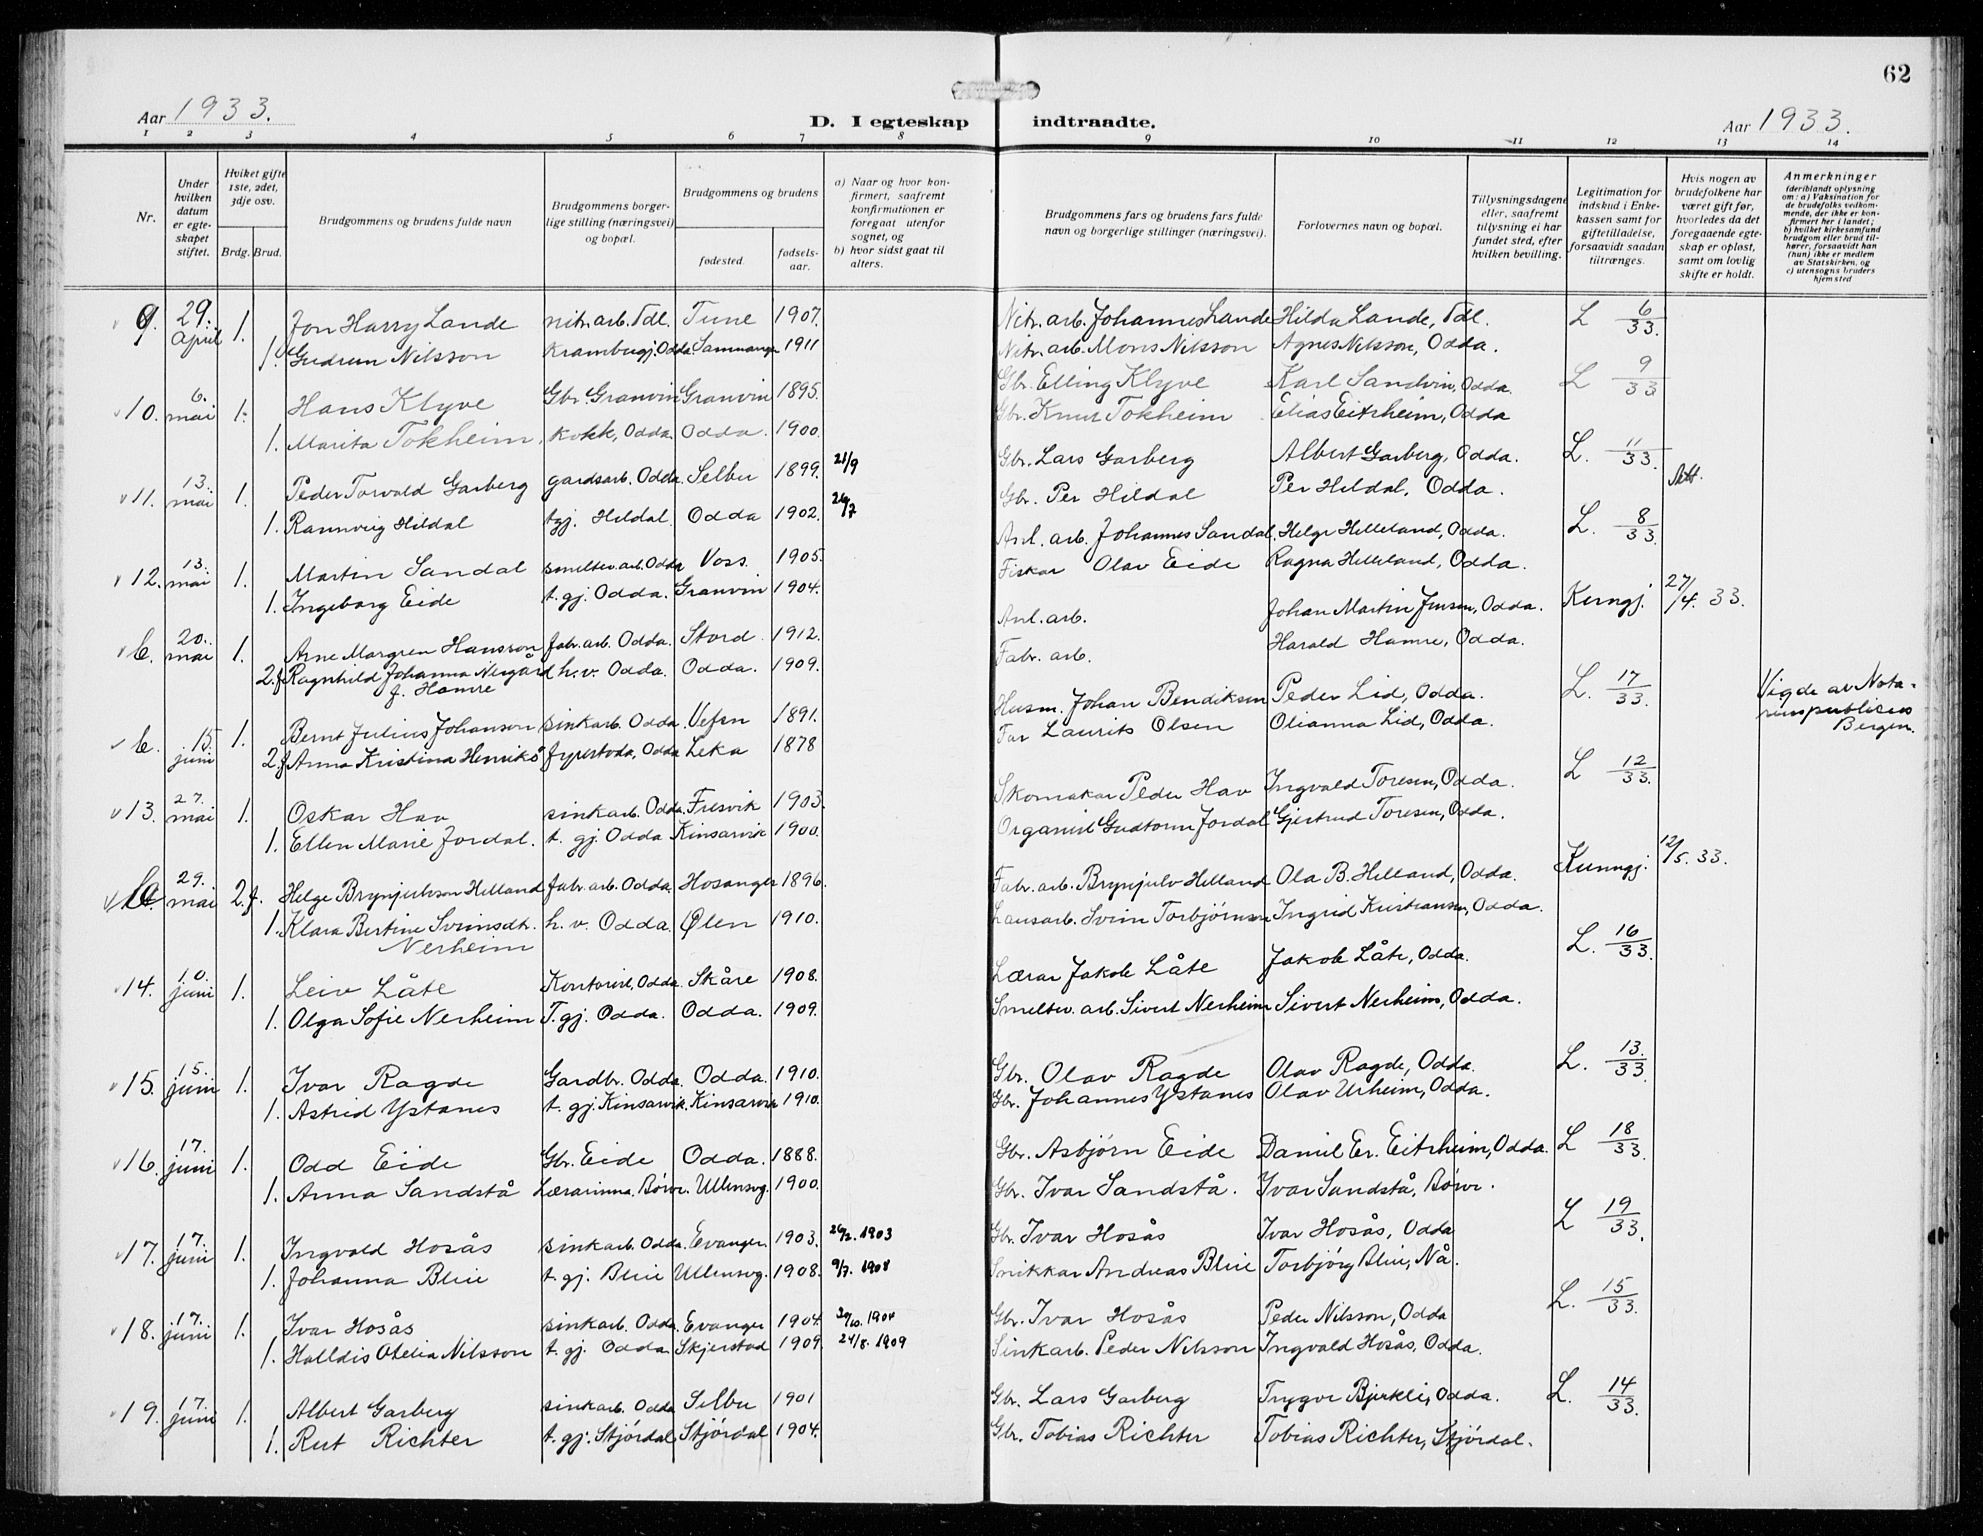 62
Aar 1933.
D. I egteskap indtraadte.
Aar 1933.
1 2 3 4 5 6 7 8 9 10 11 12 13 14
Nr.
Under hvilken datum er egte-skapet stiftet.
Hvilket gifte 1ste, 2det, 3dje osv.
Brdg. Brud.
Brudgommens og brudens fulde navn
Brudgommens borger-lige stilling (næringsvei) og bopæl.
Brudgommens og brudens
fødested.
fødsels-aar.
a) Naar og hvor kon-firmert, saafremt konfirmationen er foregaat utenfor sognet, og
b) hvor sidst gaat til alters.
Brudgommens fars og brudens fars fulde navn og borgerlige stillinger (næringsvei).
Forlovernes navn og bopæl.
Tillysningsdagene eller, saafremt tillysning ei har fundet sted, efter hvilken bevilling.
Legitimation for indskud i Enke-kassen samt for giftetilladelse, forsaavidt saadan tiltrænges.
Hvis nogen av brudefolkene har været gift før, hvorledes da det foregaaende egte-skap er opløst, samt om lovlig skifte er holdt.
Anmerkninger
(deriblandt oplysning om: a) Vaksination for de brudefolks vedkom-mende, der ikke er kon-firmert her i landet; b) hvilket kirkesamfund brudgom eller brud til-hører, forsaavidt han (hun) ikke er medlem av Statskirken, og c) utensogns bruders hjemsted
9. 29. April 1. Jon Harry Lande nitr. arb. Tdl. Tune 1907. Nitr. arb. Johannes Lande Hilda Lande, Tdl. L 6/33.
1. Gudrun Nilsson Krambugj. Odda. Samnanger 1911 Nitr. arb. Mons Nilsson Agnes Nilsson, Odda.
10. 6. mai 1. Hans Klyve Gbr. Granvin Granvin 1895. Gbr. Elling Klyve Karl Sandvin, Odda. L 9/33
1. Marita Tokheim. Kokk, Odda Odda. 1900. Gbr. Knut Tokheim Elias Eitrheim, Odda
11. 13. mai 1. Peder Torvald Garberg gardsarb. Odda. Selbu 1899. 21/9 Gbr. Lars Garberg Albert Garberg, Odda. L. 11/33.
1. Rannveig Hildal tgj. Hildal. Odda 1902. 26/7 Gbr. Per Hildal Per Hildal, Odda. Att.
12. 13. mai 1. Martin Sandal smeltev. arb. Odda Voss. 1905. Anl. arb. Johannes Sandal, Helge Helleland, Odda. L. 8/33.
1. Ingeborg Eide t. gj. Odda. Granvin 1904. Fiskar Olav Eide Ragna Helleland, Odda.
b. 20. mai 1. Arne Margren Hansson fabr. arb. Odda. Stord. 1912. Anl. arb. Johan Martin Jensen, Odda. Kunngj. 27/4. 33.
2. f Ragnhild Johanna Nesgård f. Hamre h. v. Odda. Odda. 1909. Fabr. arb. Harald Hamre, Odda.
b. 15. juni 1. Bernt Julius Johanson sinkarb. Odda. Vefsn 1891. Husm. Johan Bendiksen Peder Lid, Odda. L. 17/33. Vigde av Nota-
riuspublicus
Bergen.
2. f Anna Kristina Henriks. fyrestova, Odda Leka 1878 Far Laurits Olsen Olianna Lid, Odda.
13. 27. mai 1. Oskar Hav sinkarb. Odda. Fresvik 1903. Skomakar Peder Hav Ingvald Toresen, Odda. L 12/33.
1. Ellen Marie Jordal. t. gj. Odda Kinsarvik 1900. Organist Gudtorm Jordal Gjertrud Toresen, Odda.
b. 29. mai 2. f. Helge Brynjulvson Helland fabr. arb. Odda. Hosanger 1896. Fabr. arb. Brynjulv Helland Ola B. Helland, Odda. Kunngj. 12/5. 33.
1. Klara Bertine Svinsdt. Nerheim h. v. Odda. Ølen 1910. Lausarb. Svein Torbjørnsen Ingrid Kristiansen, Odda.
14. 10. juni 1. Leiv Låte Kontorist, Odda. Skåre 1908. Lærar Jakob Låte Jakob Låte, Odda. L. 16/33.
1. Olga Sofie Nerheim T. gj. Odda. Odda. 1909. Smeltev. arb. Sivert Nerheim Sivert Nerheim, Odda.
15. 15. juni 1. Ivar Ragde Gardbr. Odda. Odda. 1910. Gbr. Olav Ragde Olav Ragde, Odda. L. 13./33.
1. Astrid Ystanes t. gj. Kinsarvik. Kinsarvik 1910. Gbr. Johannes Ystanes Olav Urheim, Odda.
16. 17. juni 1. Odd Eide Gbr. Eide Odda. 1888. Gbr. Asbjørn Eide Daniel Er. Eitrheim, Odda. L 18/33.
1. Anna Sandstå Lærarinna, Børve. Ullensvg. 1900. Gbr. Ivar Sandstå. Ivar Sandstå, Børve.
17. 17. juni 1. Ingvald Hosås sinkarb. Odda. Evanger. 1903. 26/2. 1903 Gbr. Ivar Hosås Ivar Hosås, Odda L 19/33.
1. Johanna Bleie t. gj. Bleie Ullensvg. 1908. 9/7. 1908 Snikkar Andreas Bleie Torbjørg Bleie, Nå.
18. 17. juni 1. Ivar Hosås sinkarb. Odda. Evanger 1904. 30/10. 1904 Gbr. Ivar Hosås Peder Nilsson, Odda L. 15/33.
1. Halldis Otelia Nilsson t. gj. Odda Skjerstad 1909. 24/8. 1909 Sinkarb. Peder Nilsson Ingvald Hosås, Odda.
19. 17. juni 1. Albert Garberg sinkarb. Odda Selbu 1901 Gbr. Lars Garberg Trygve Bjerkli, Odda. L. 14/33.
1. Rut Richter t. gj. Stjórdal Stjórdal 1904. Gbr. Tobias Richter Tobias Richter, Stjórdal.